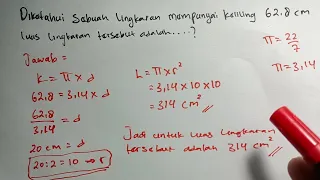 Diketahui sebuah lingkaran mempunyai keliling 62,8 cm
luas lingkaran tersebut adalah.....?
Jawab =
K = π x d
62,8 = 3,14 x d
62,8 / 3,14 = d
20 cm = d
20 : 2 = 10 → r
L = π x r²
= 3,14 x 10 x 10
= 314 cm²
Jadi untuk luas lingkaran
tersebut adalah 314 cm²
π = 22/7
π = 3,14